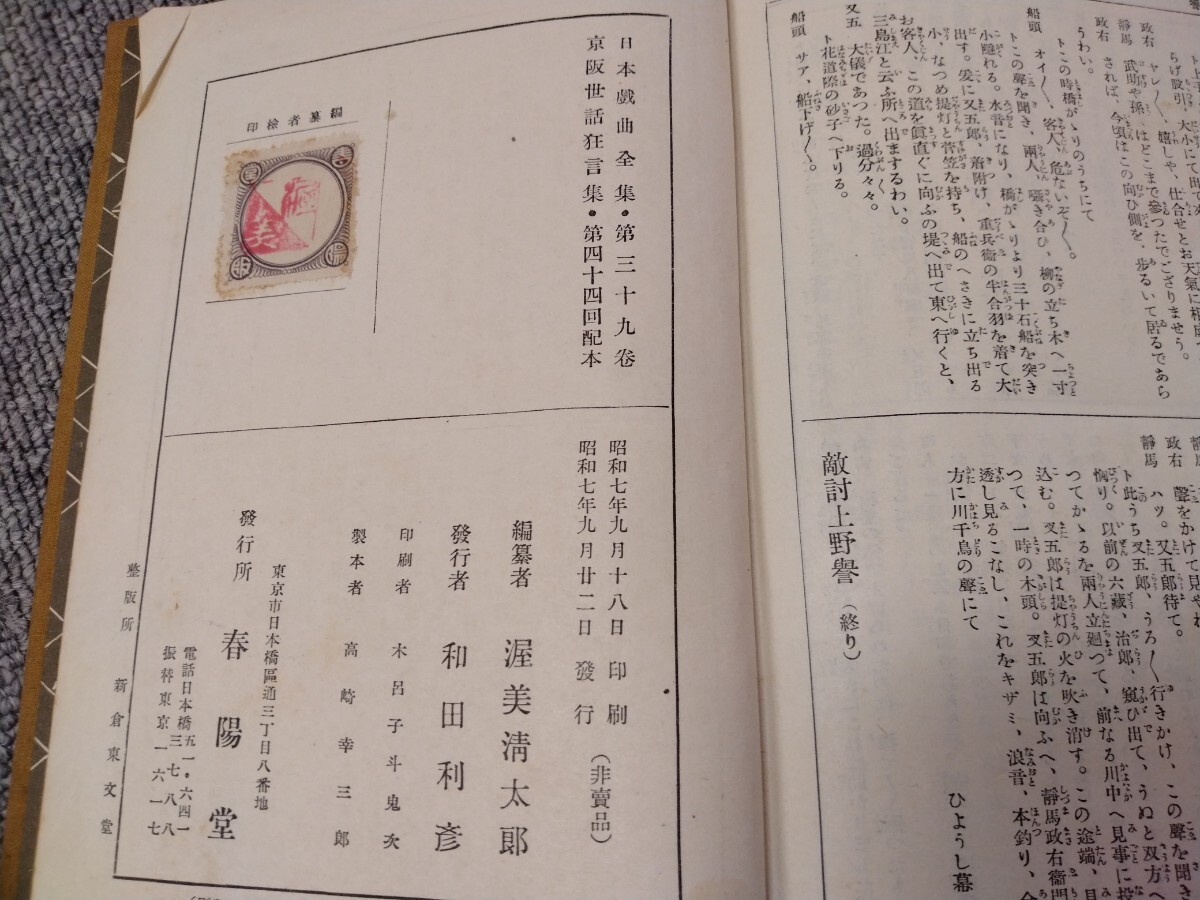 らげ股引、大小にて出て
政右 ヤレ〳〵、嬉しや、仕合せとお天氣に相成
靜馬 武助や孫 はどこまで參つたでござりませう。
政右 されば、今頃はこの向ひ側を、歩るいて居るであら
うわい。
トこの時橋がゝりのうちにて
船頭 オイ〳〵、客人、危ないぞ〳〵。
トこの聲を聞き、兩人、囁き合ひ、柳の立ち木へ一寸
小隱れる。水音になり、橋がゝりより三十石船を突き
出す。爰に又五郎、着附け、重兵衞の半合羽を着て大
小、なつめ提灯と菅笠を持ち、船のへさきに立ち出る
お客人、この道を眞直ぐに向ふの堤へ出て東へ行くと、
三島江と云ふ所へ出まするわい。
又五 大儀であつた。過分々々。
ト花道際の砂子へ下りる。
船頭 サア、船下げ〳〵。
靜馬
政右
聲をかけて見やれ
靜馬 ハツ。又五郎待て。
ト此うち又五郎、うろ〳〵行きかけ、この聲を聞き
恟り。以前の六藏、治郎、窺ひ出て、うぬと双方へ
つてかゝるを兩人立廻つて、前なる川中へ見事に投
込む。又五郎は提灯の火を吹き消す。この途端、月
つて、一時の木頭。又五郎は向ふへ、靜馬政右衞門
透し見るこなし、これをキザミ、浪音、本釣り、合
方に川千鳥の聲にて
ひようし幕
敵討上野譽 (終り)
日本戲曲全集・第三十九卷
京阪世話狂言集・第四十四回配本
編纂者檢印
昭和七年九月十八日 印刷
昭和七年九月廿二日 發行
(非賣品)
編纂者 渥美淸太郎
發行者 和田利彥
印刷者 木呂子斗鬼次
製本者 高崎幸三郎
東京市日本橋區通三丁目八番地
發行所 春陽堂
電話日本橋五一・六四一
三七八八
振替東京一六一七
整版所 新倉東文堂